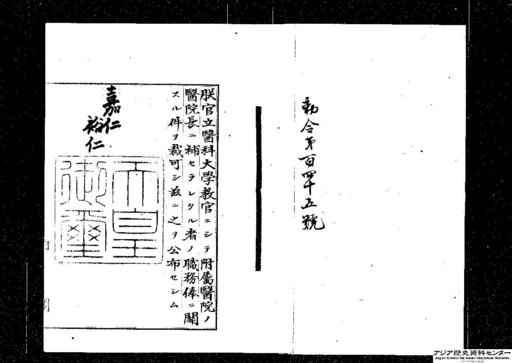 勅令第百四十五號
朕官立醫科大學教官ニシテ附屬醫院ノ
醫院長ニ補セラレタル者ノ職務俸ニ關
スル件ヲ裁可シ茲ニ之ヲ公布セシム
嘉仁
裕仁
天皇
御璽
アジア歴史資料センター
Japan Center for Asian Historical Records